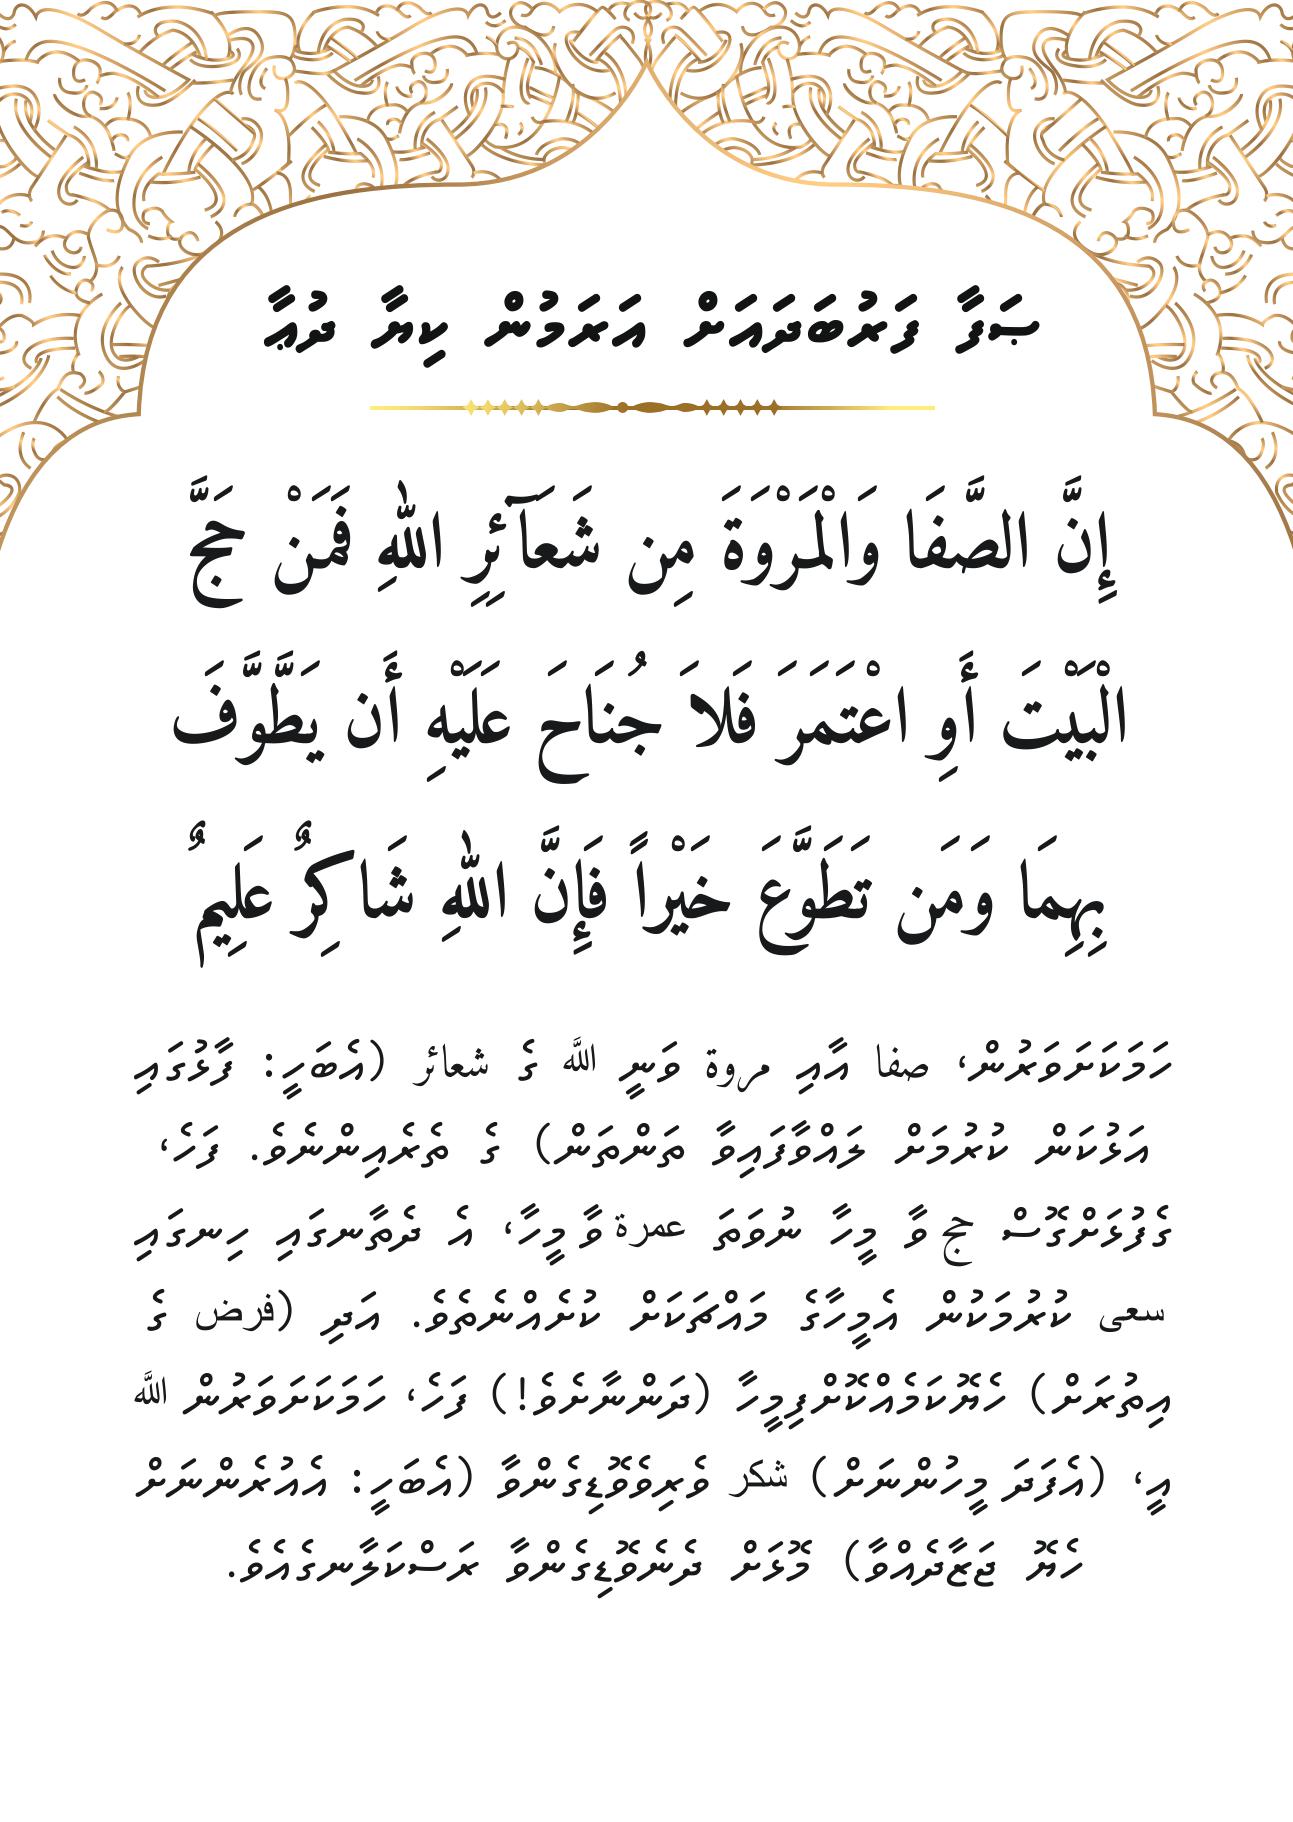 ޞަފާ ފަރުބަދައަށް އަރަމުން ކިޔާ ދުޢާ
إِنَّ الصَّفَا وَالْمَرْوَةَ مِن شَعَآئِرِ اللهِ فَمَنْ حَجَّ
الْبَيْتَ أَوِ اعْتَمَرَ فَلاَ جُنَاحَ عَلَيْهِ أَن يَطَّوَّفَ
بِهِمَا وَمَن تَطَوَّعَ خَيْراً فَإِنَّ اللهِ شَاكِرٌ عَلِيمٌ
ހަމަކަށަވަރުން، صفا އާއި مروة ވަނީ الله ގެ شعائر (އެބަހީ: ފާޅުގައި
އަޅުކަން ކުރުމަށް ލައްވާފައިވާ ތަންތަން) ގެ ތެރެއިންނެވެ. ފަހެ،
ގެފުޅަށްގޮސް حج ވާ މީހާ ނުވަތަ عمرة ވާ މީހާ، އެ ދެތާނގައި ހިނގައި
سعى ކުރުމަކުން އެމީހާގެ މައްޗަކަށް ކުށެއްނެތެވެ. އަދި (فرض ގެ
އިތުރަށް) ހެޔޮކަމެއްކޮށްފިމީހާ (ދަންނާށެވެ!) ފަހެ، ހަމަކަށަވަރުން الله
އީ، (އެފަދަ މީހުންނަށް) شكر ވެރިވެވޮޑިގެންވާ (އެބަހީ: އެއުރެންނަށް
ހެޔޮ ޖަޒާދެއްވާ) މޮޅަށް ދެނެވޮޑިގެންވާ ރަސްކަލާނގެއެވެ.